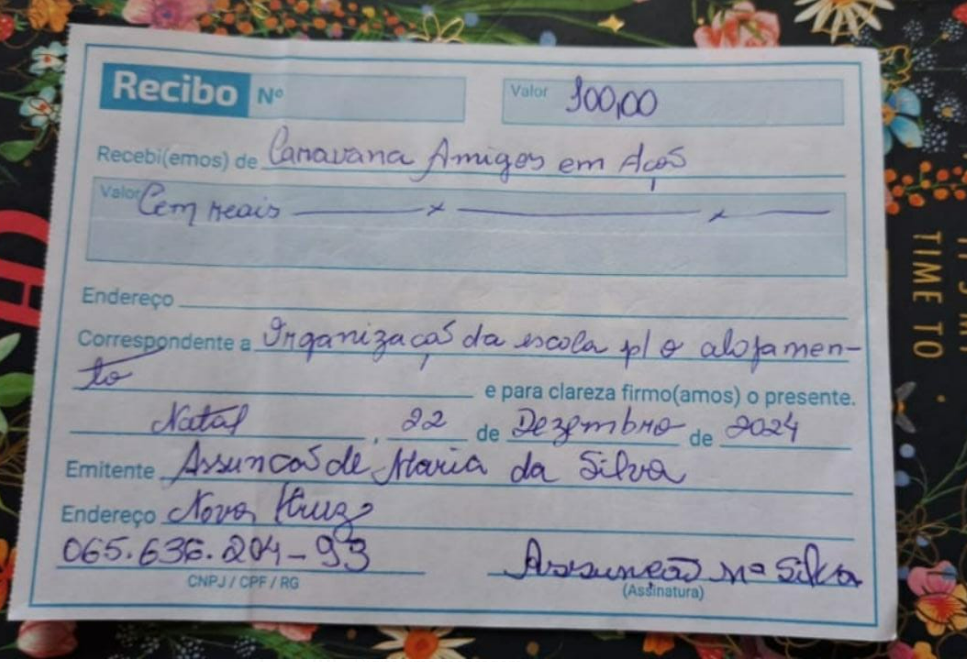 Recibo Nº
Valor 100,00
Recebi(emos) de Caravana Amigos em Ação
Valor Cem reais
Endereço
Correspondente a Organização da escola p/ o alojamen-
to e para clareza firmo(amos) o presente.
Natal, 22 de Dezembro de 2024
Emitente Assuncão de Maria da Silva
Endereço Nova Cruz
065.636.204-93
CNPJ / CPF / RG
Assunção Mª Silva
(Assinatura)
TIME TO